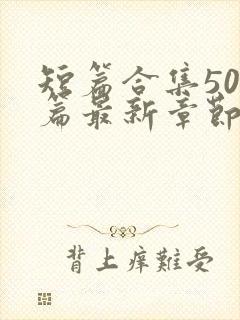 短篇合集50
篇最新章節
背上痒難受